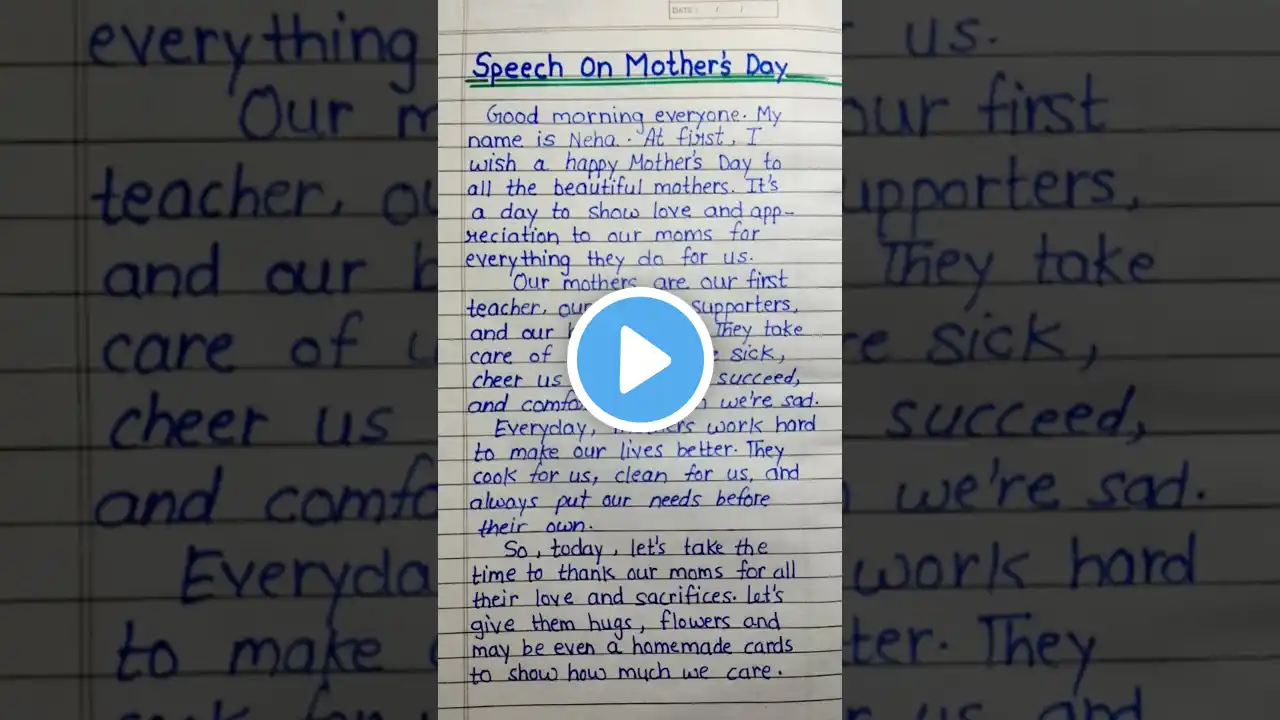 DATE: / /
Speech On Mother's Day
Good morning everyone. My
name is Neha. At first, I
wish a happy Mother's Day to
all the beautiful mothers. It's
a day to show love and app-
reciation to our moms for
everything they do for us.
Our mothers are our first
teacher, our supporters,
and our They take
care of sick,
cheer us succeed,
and we're sad.
Everyday, mothers work hard
to make our lives better. They
cook for us, clean for us, and
always put our needs before
their own.
So, today, let's take the
time to thank our moms for all
their love and sacrifices. Let's
give them hugs, flowers and
may be even a homemade cards
to show how much we care.